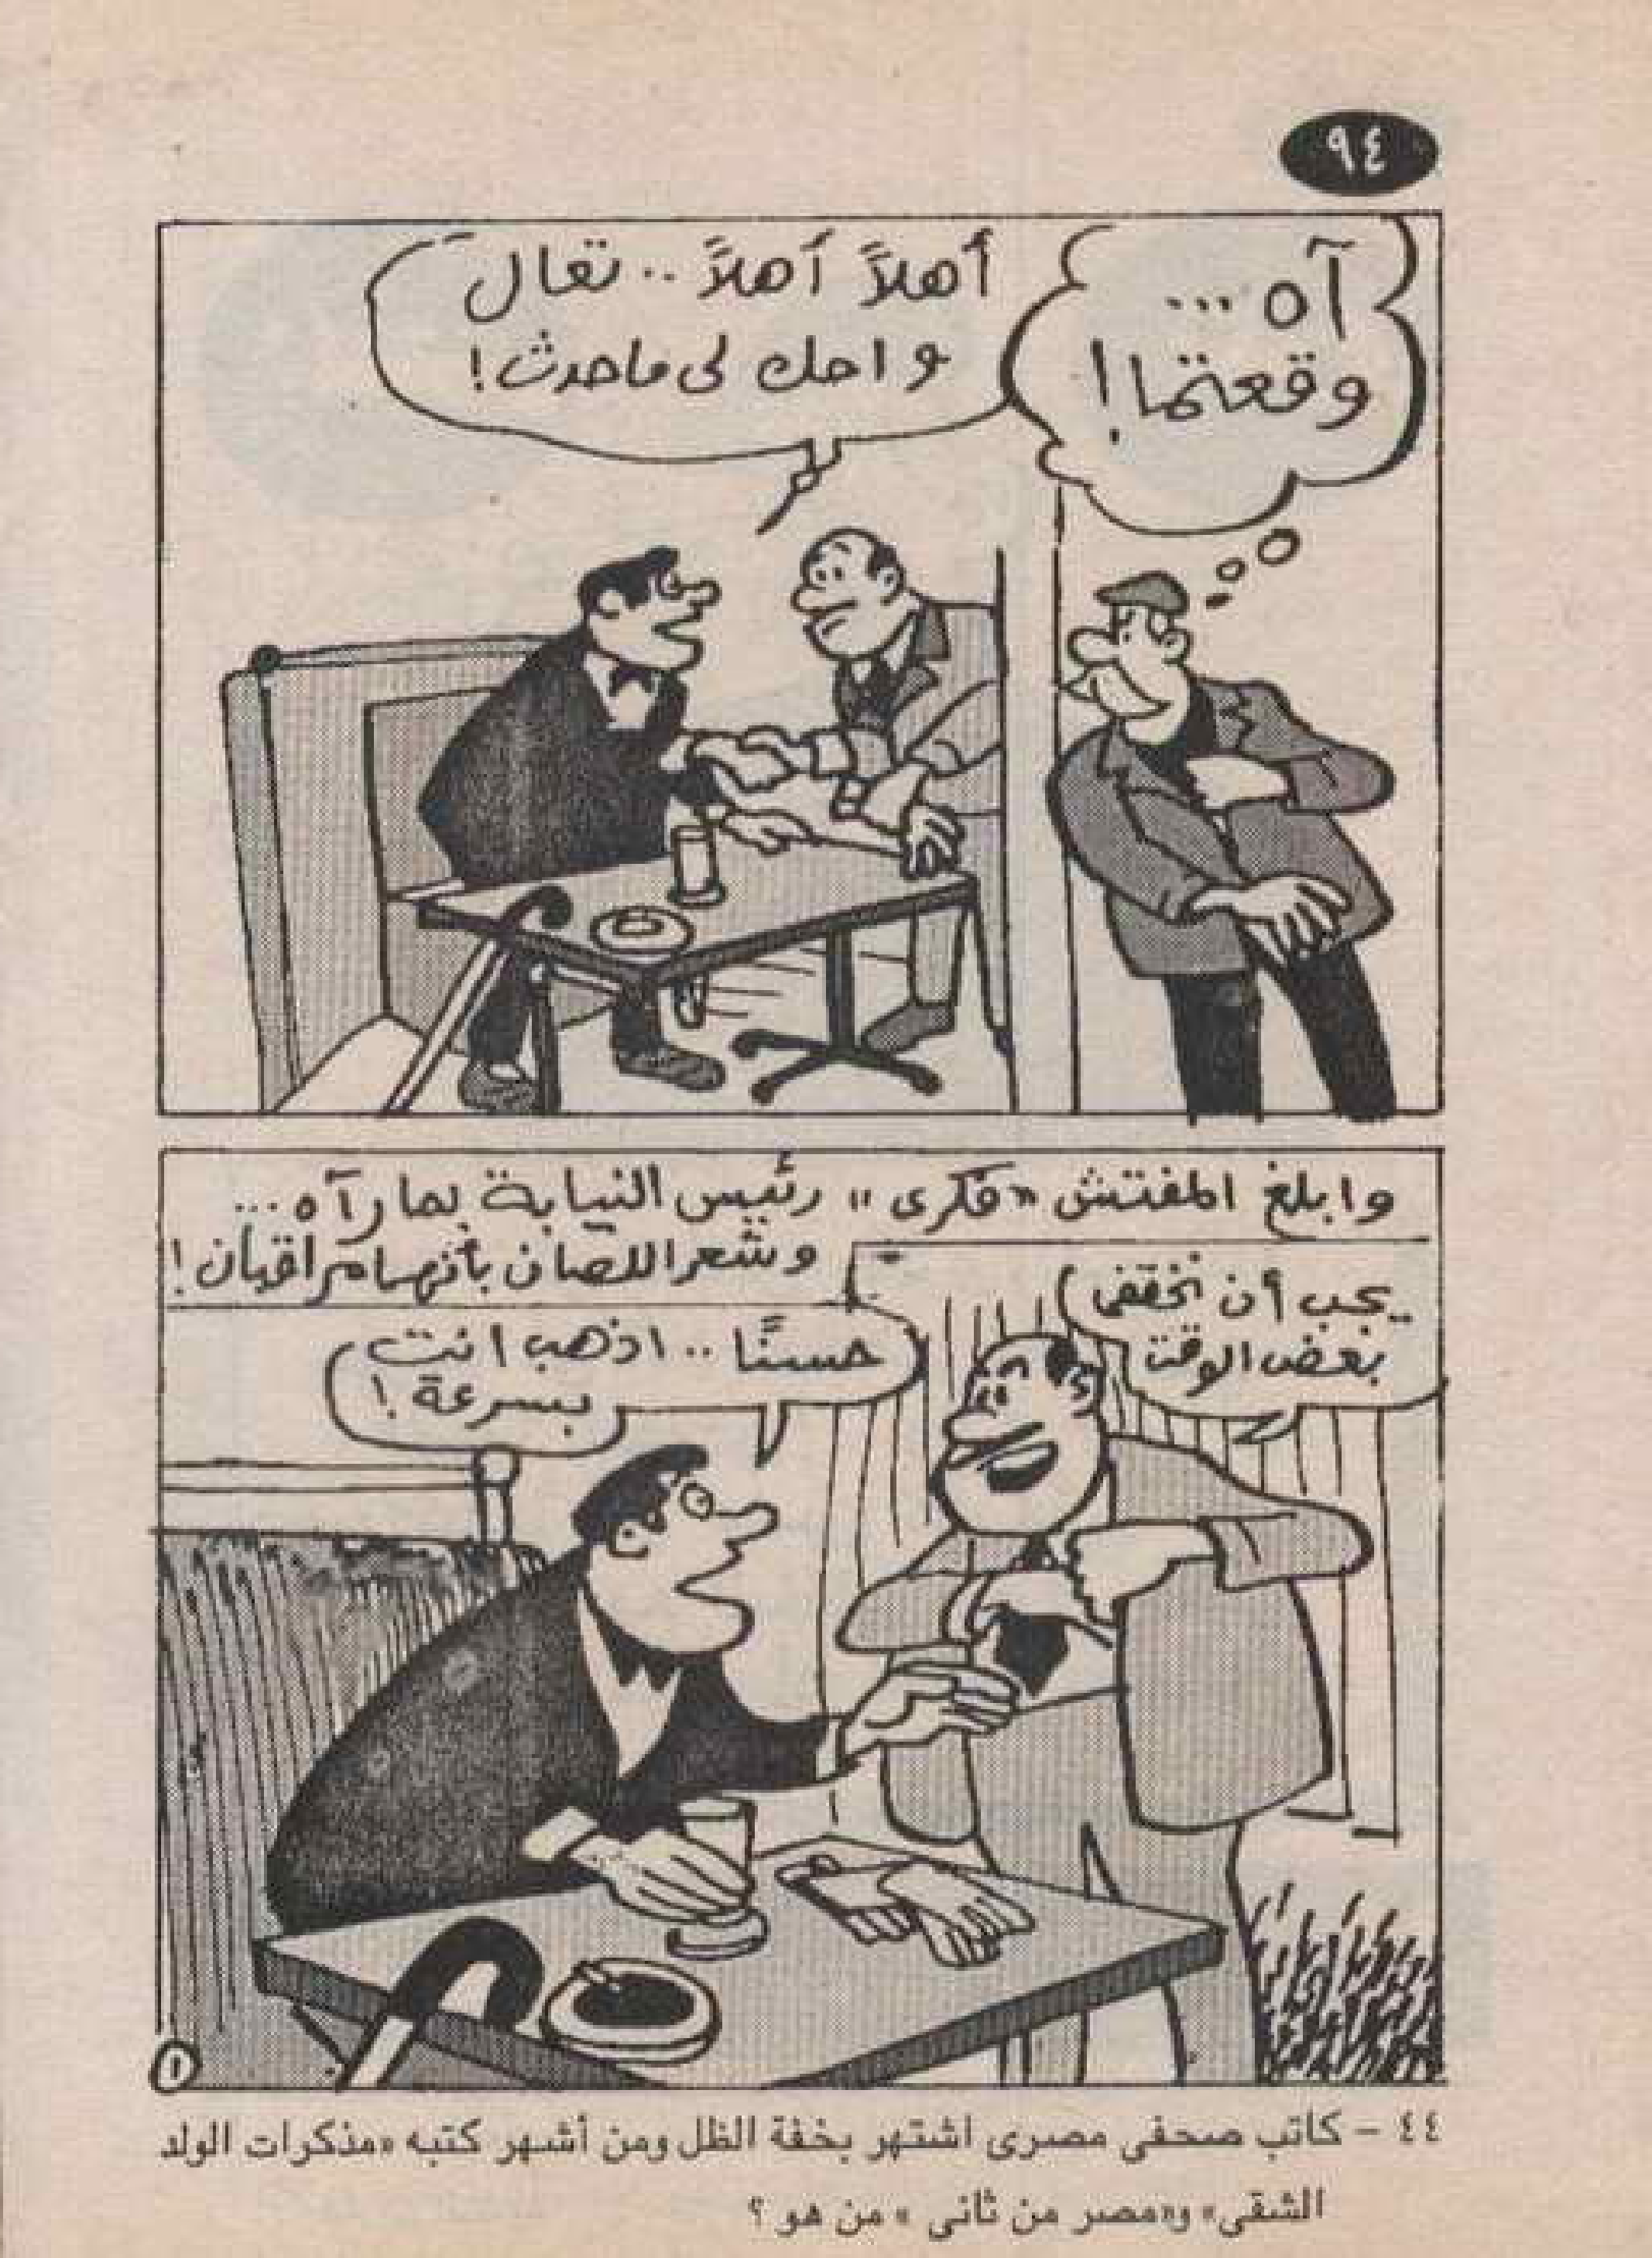 ٩٤
آه ...
وقعتما !
أهلاً أهلاً .. تعال
و احك لى ماحدث !
وابلغ المفتش «فكرى» رئيس النيابة بما رآه ...
وشعر اللصان بأنهما مراقبان !
يجب أن نختفى
بعض الوقت
حسنًا .. اذهب انت
بسرعة !
١
٤٤ - كاتب صحفى مصرى اشتهر بخفة الظل ومن أشهر كتبه «مذكرات الولد
الشقى» و«مصر من ثانى » من هو ؟